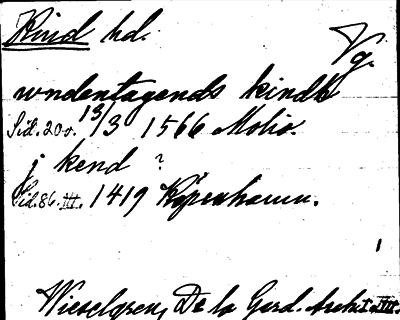 Kind hd.
Vg.
wndentagends kindh
Sid. 200. 13/3 1566 Molio.
j kend ?
Sid. 86. III. 1419 Köpenhamn.
Wieselgren, De la Gard. Arch. I. III.